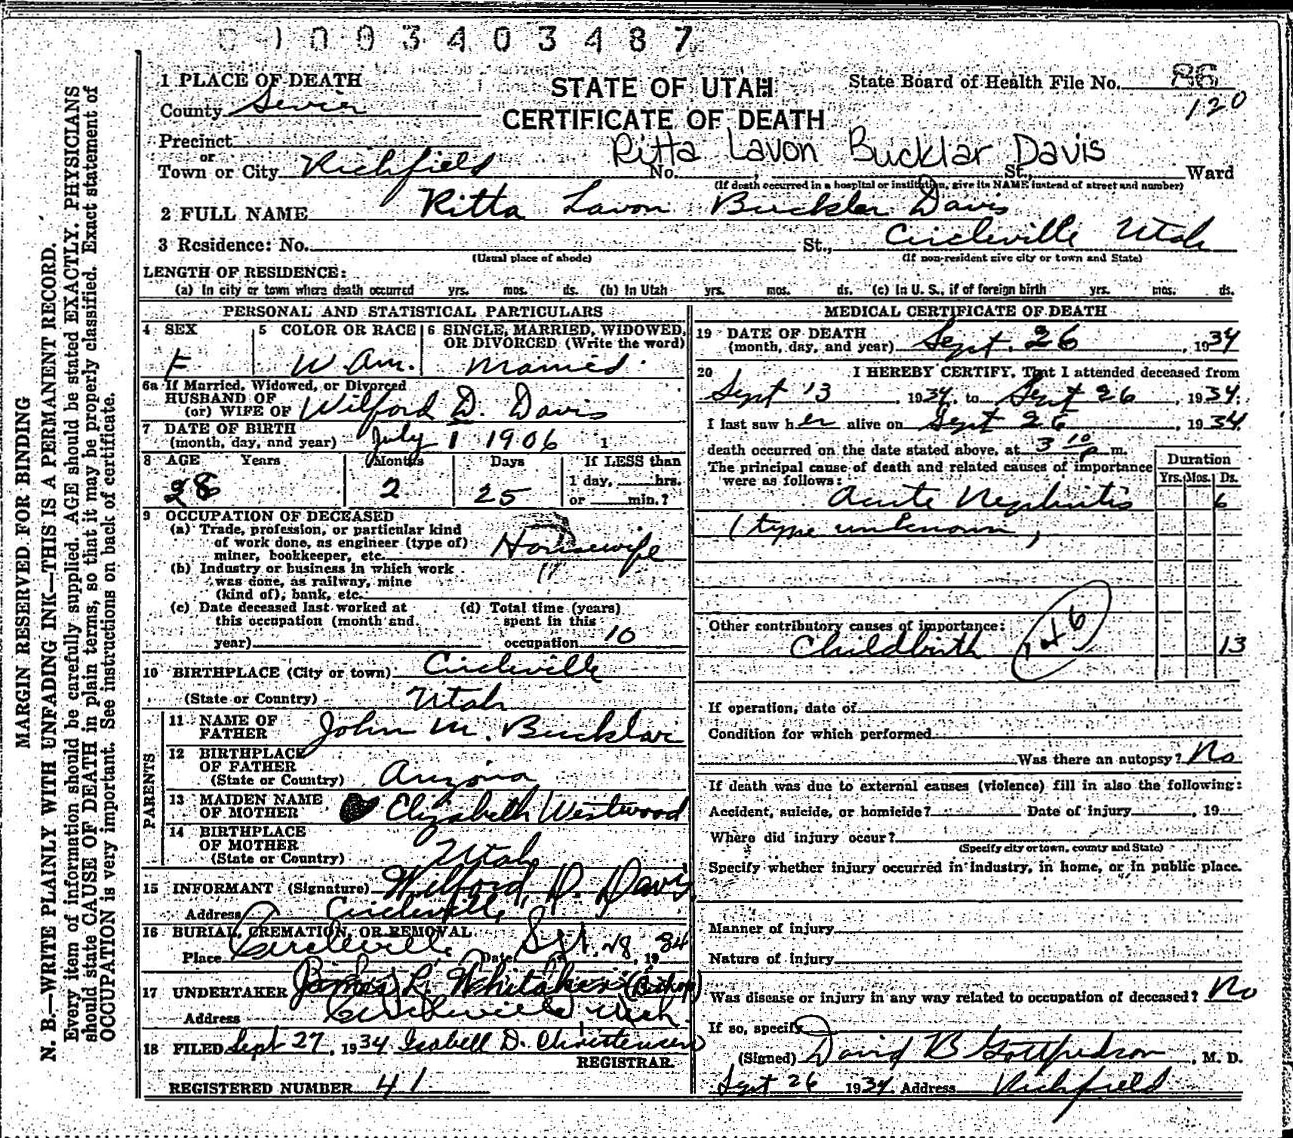 01003403487
1 PLACE OF DEATH
STATE OF UTAH
State Board of Health File No. 86
County Sevier
120
CERTIFICATE OF DEATH
Precinct
or
Ritta Lavon Bucklar Davis
Town or City Richfield No. St., Ward
(If death occurred in a hospital or institution, give its NAME instead of street and number)
2 FULL NAME Ritta Lavon Bucklar Davis
3 Residence: No. St., Circleville Utah
(Usual place of abode) (If non-resident give city or town and State)
LENGTH OF RESIDENCE:
(a) In city or town where death occurred yrs. mos. ds. (b) In Utah yrs. mos. ds. (c) In U. S., if of foreign birth yrs. mos. ds.
PERSONAL AND STATISTICAL PARTICULARS
4 SEX
F
5 COLOR OR RACE
W. Am.
6 SINGLE, MARRIED, WIDOWED, OR DIVORCED (Write the word)
Married
6a If Married, Widowed, or Divorced
HUSBAND OF
(or) WIFE OF Wilford D. Davis
7 DATE OF BIRTH
(month, day, and year) July 1 1906 1
8 AGE Years Months Days If LESS than
1 day, hrs.
28 2 25 or min.?
9 OCCUPATION OF DECEASED
(a) Trade, profession, or particular kind
of work done, as engineer (type of)
miner, bookkeeper, etc. Housewife
(b) Industry or business in which work
was done, as railway, mine
(kind of), bank, etc. "
(c) Date deceased last worked at
this occupation (month and
year)
(d) Total time (years)
spent in this
occupation 10
10 BIRTHPLACE (City or town) Circleville
(State or Country) Utah
PARENTS
11 NAME OF
FATHER John M. Bucklar
12 BIRTHPLACE
OF FATHER
(State or Country) Arizona
13 MAIDEN NAME
OF MOTHER Elizabeth Westwood
14 BIRTHPLACE
OF MOTHER
(State or Country) Utah
15 INFORMANT (Signature) Wilford D. Davis
Address Circleville
16 BURIAL, CREMATION, OR REMOVAL
Place Circleville Date Sept. 28, 1934
17 UNDERTAKER James L. Whitaker (Bishop)
Address Circleville Utah
18 FILED Sept 27, 1934 Isabell D. Christensen
REGISTRAR.
REGISTERED NUMBER 41
MEDICAL CERTIFICATE OF DEATH
19 DATE OF DEATH
(month, day, and year) Sept. 26, 1934
20 I HEREBY CERTIFY, That I attended deceased from
Sept 13, 1934, to Sept 26, 1934.
I last saw her alive on Sept 26, 1934
death occurred on the date stated above, at 3 10 p. m.
The principal cause of death and related causes of importance
were as follows:
Duration
Yrs. Mos. Ds.
Acute Nephritis 6
(type unknown)
Other contributory causes of importance:
Childbirth 146 13
If operation, date of
Condition for which performed
Was there an autopsy? No
If death was due to external causes (violence) fill in also the following:
Accident, suicide, or homicide? Date of injury , 19
Where did injury occur?
(Specify city or town, county and State)
Specify whether injury occurred in industry, in home, or in public place.
Manner of injury
Nature of injury
Was disease or injury in any way related to occupation of deceased? No
If so, specify
(Signed) David B Gottfredson, M. D.
Sept 26 1934 Address Richfield
MARGIN RESERVED FOR BINDING
N. B.—WRITE PLAINLY WITH UNFADING INK—THIS IS A PERMANENT RECORD.
Every item of information should be carefully supplied. AGE should be stated EXACTLY. PHYSICIANS
should state CAUSE OF DEATH in plain terms, so that it may be properly classified. Exact statement of
OCCUPATION is very important. See instructions on back of certificate.